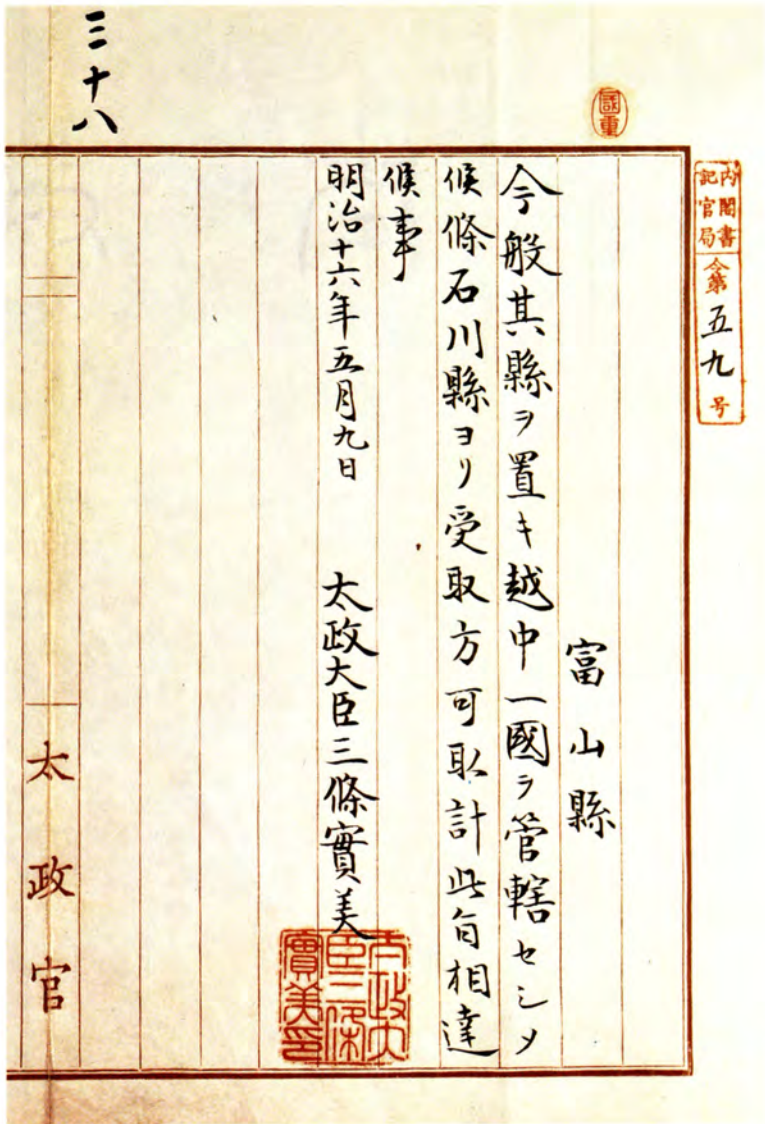 三十八
國重
内閣書
記官局
令第五九号
富山縣
今般其縣ヲ置キ越中一國ヲ管轄セシメ
候條石川縣ヨリ受取方可取計此旨相達
候事
明治十六年五月九日 太政大臣三條實美
太政大
臣三條
實美印
太政官